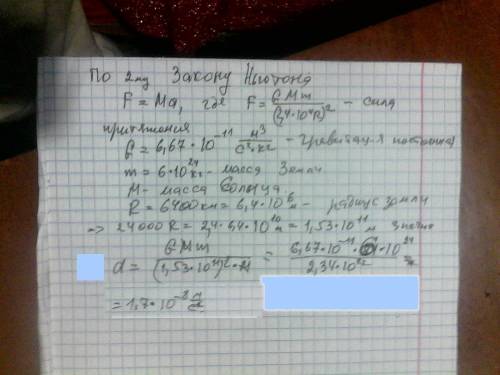 По 2му Закону Ньютона
F = Ma, где F = GMm/(2,4·10⁴R)² - сила
притяжения
G = 6,67·10⁻¹¹ м³/с²·кг - гравитац-я постоянная
m = 6·10²⁴ кг - масса Земли
M - масса Солнца.
R = 6400 км = 6,4·10⁶ м - радиус земли
⇒ 24000 R = 2,4·6,4·10¹⁰ м = 1,53·10¹¹ м значит
a = GMm/(1,53·10¹¹)²·M = 6,67·10⁻¹¹·6·10²⁴/2,34·10²²
= 1,7·10⁻⁸ м/с²